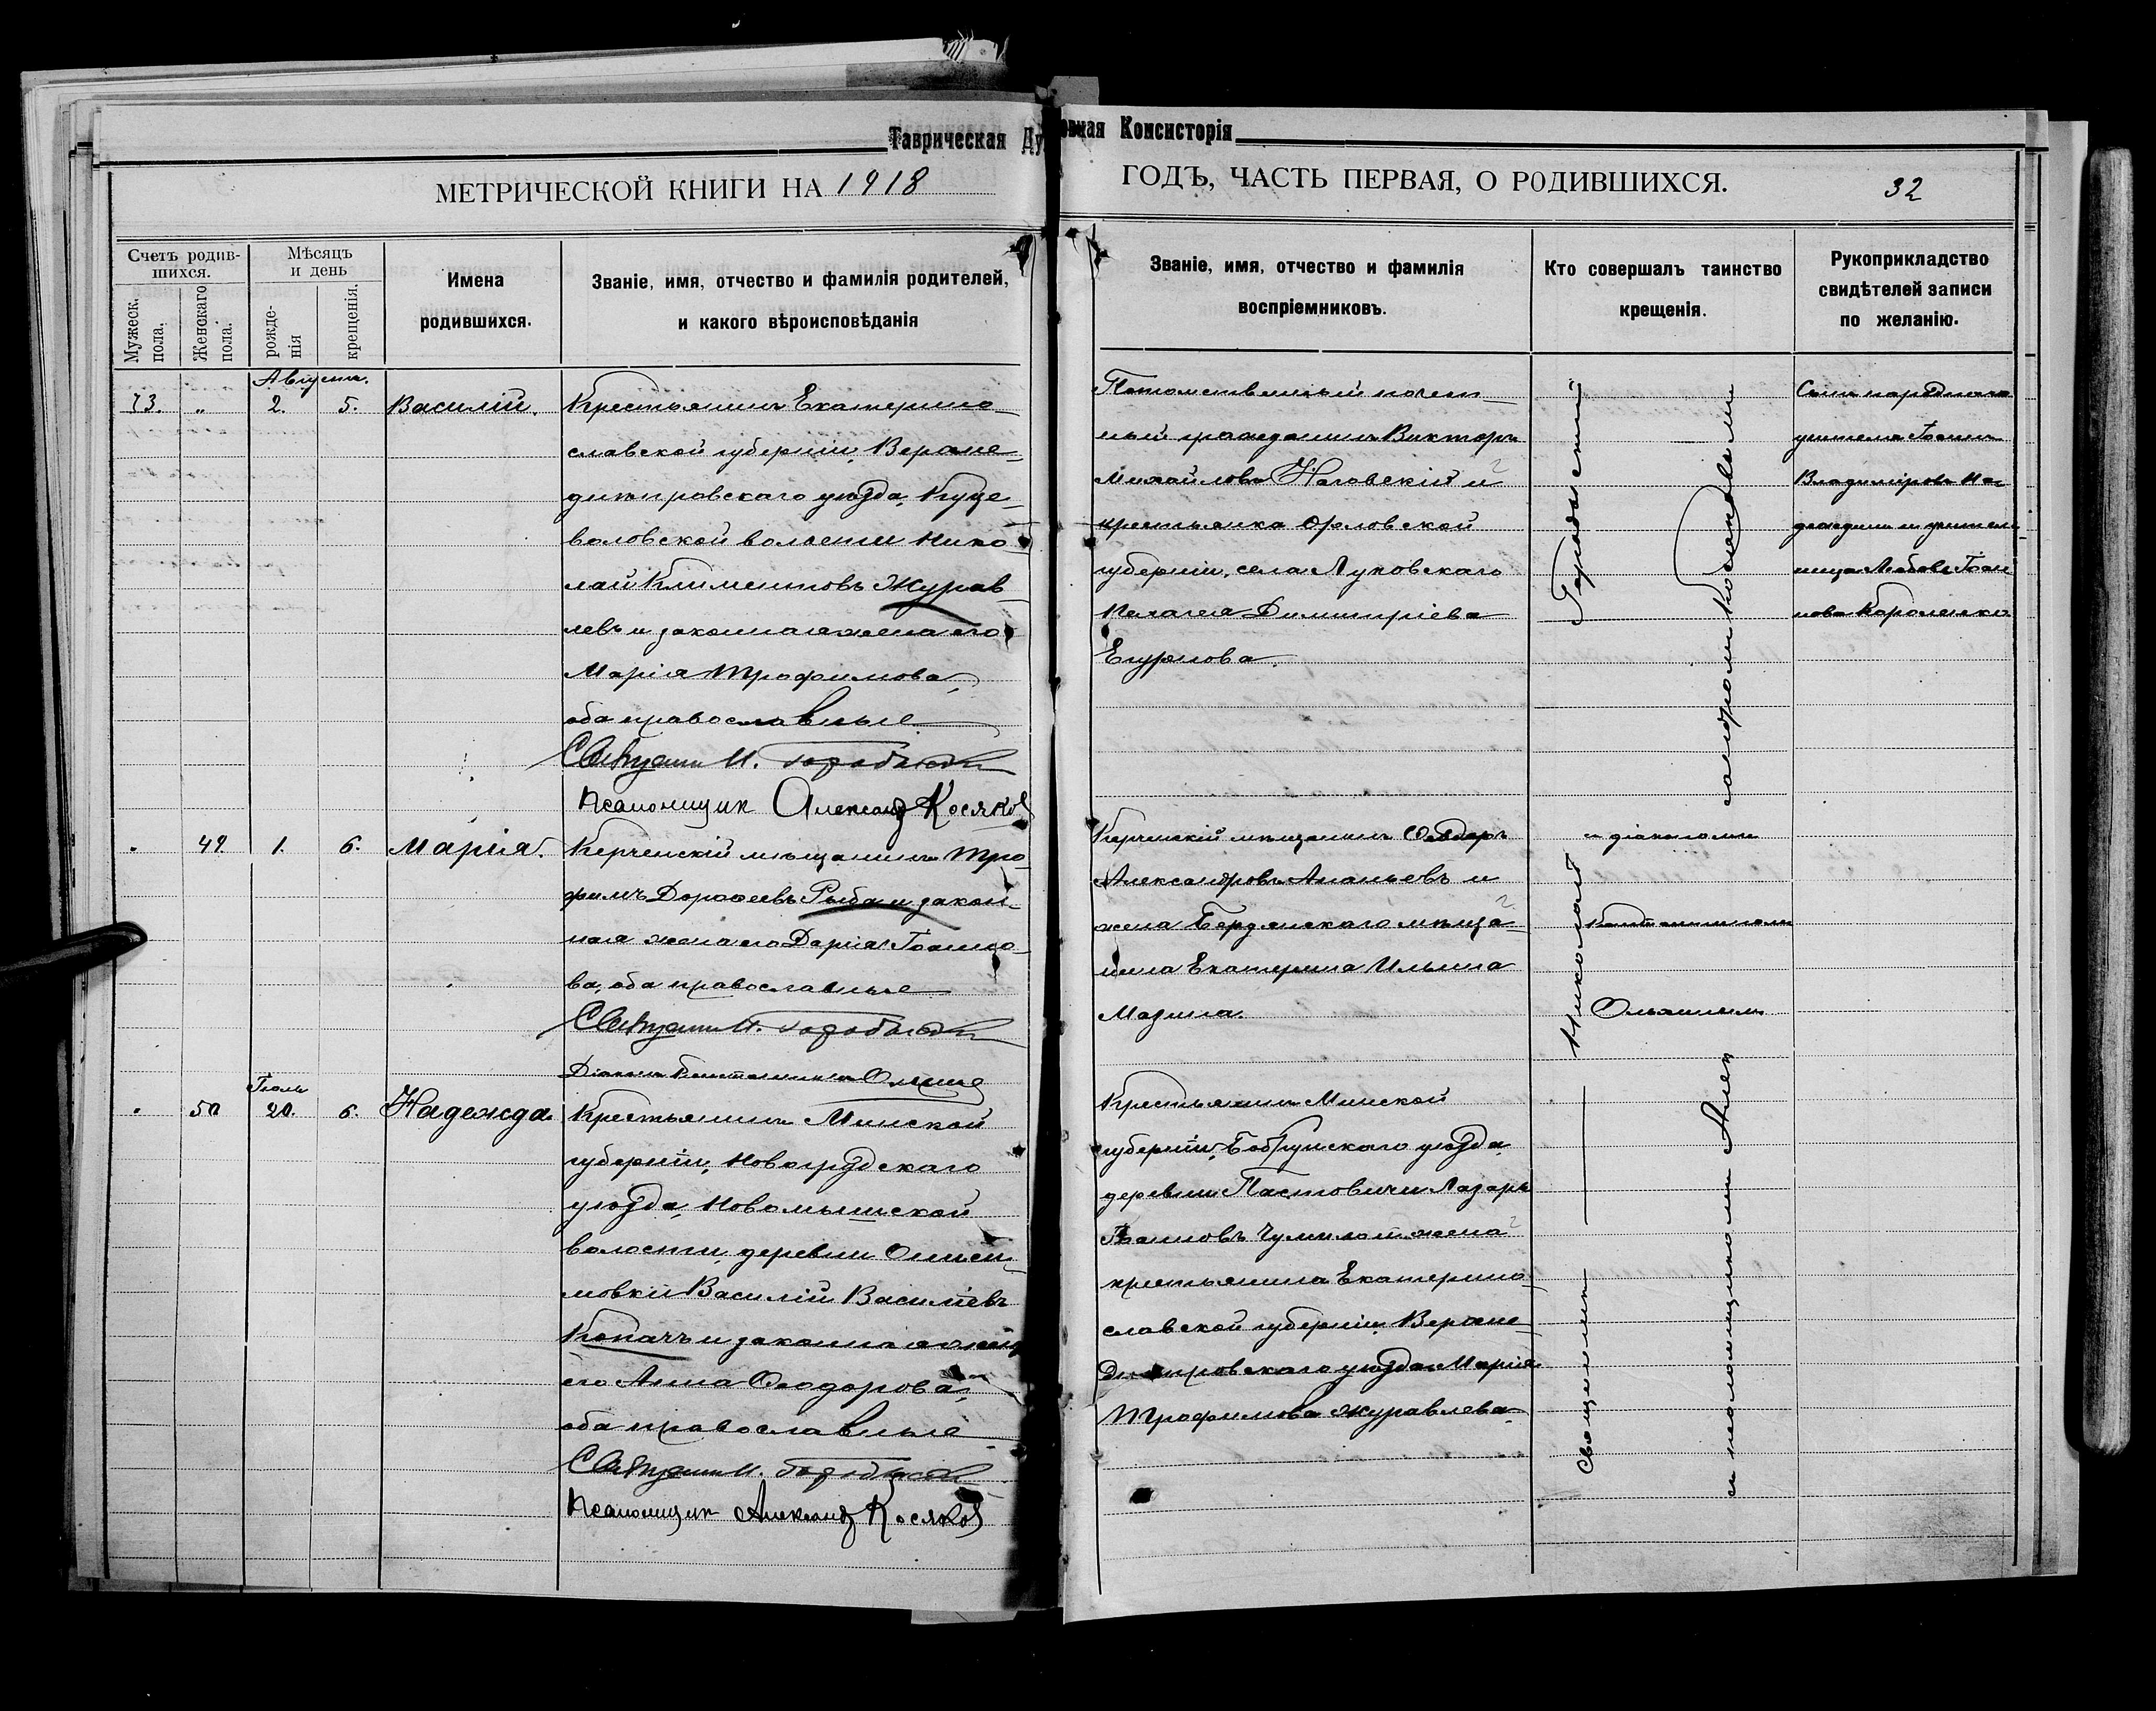 Таврическая Духовная Консисторія
МЕТРИЧЕСКОЙ КНИГИ НА 1918 ГОДЪ, ЧАСТЬ ПЕРВАЯ, О РОДИВШИХСЯ.
32
Счетъ родив-
шихся.
Мужеск.
пола.
Женскаго
пола.
Мѣсяцъ
и день
рожде-
нія
крещенія.
Имена
родившихся.
Званіе, имя, отчество и фамилія родителей,
и какого вѣроисповѣданія
Званіе, имя, отчество и фамилія
воспріемниковъ.
Кто совершалъ таинство
крещенія.
Рукоприкладство
свидѣтелей записи
по желанію.
Августа.
73. " 2. 5. Василій.
Крестьянинъ Екатерино-
славской губерніи, Верхне-
днѣпровскаго уѣзда, Куце-
воловской волости Нико
лай Климентовъ Журав
левъ и законная жена его
Марія Трофимова,
оба православные
Священ. Н. Городыскій
Псаломщик Александр Косяков
Потомственный почет-
ный гражданинъ Викторъ
Михайловъ Наговскій и
крестьянка Орловской
губерніи, села Луковскаго
Пелагея Димитріева
Егурнова.
Сынъ народнаго
учителя Іоаннъ
Владиміровъ
учитель-
ница Любовь Іоан
нова Короленко
49. 1. 6. Марія.
Керченскій мѣщанинъ Тро-
фимъ Дороѳеевъ Рыба и закон-
ная жена его Дарія Іоанно-
ва, оба православные
Священ. Н. Городыскій
Діаконъ Константинъ Ольхинъ
Керченскій мѣщанинъ Ѳеодоръ
Александровъ Ананьевъ и
жена Бердянскаго мѣща-
нина Екатерина Ильина
Мазина.
и діакономъ
Константиномъ
Ольхинымъ
Іюль
50 20. 6. Надежда.
Крестьянинъ Минской
губерніи, Новогрудскаго
уѣзда, Новомышской
волости, деревни
Василій Василіевъ
Копачъ и законная жена
его Анна Ѳеодорова,
оба православные
Священ. Н. Городыскій
Псаломщик Александр Косяков
Крестьянинъ Минской
губерніи, Бобруйскаго уѣзда
деревни Пастовичи Лазарь
Іоанновъ Чумила и жена
крестьянина Екатерино-
славской губерніи Верхне-
днѣпровскаго уѣзда Марія
Трофимова Журавлева.
Священникъ Николай Городыскій
и псаломщикомъ Александромъ Косяковымъ